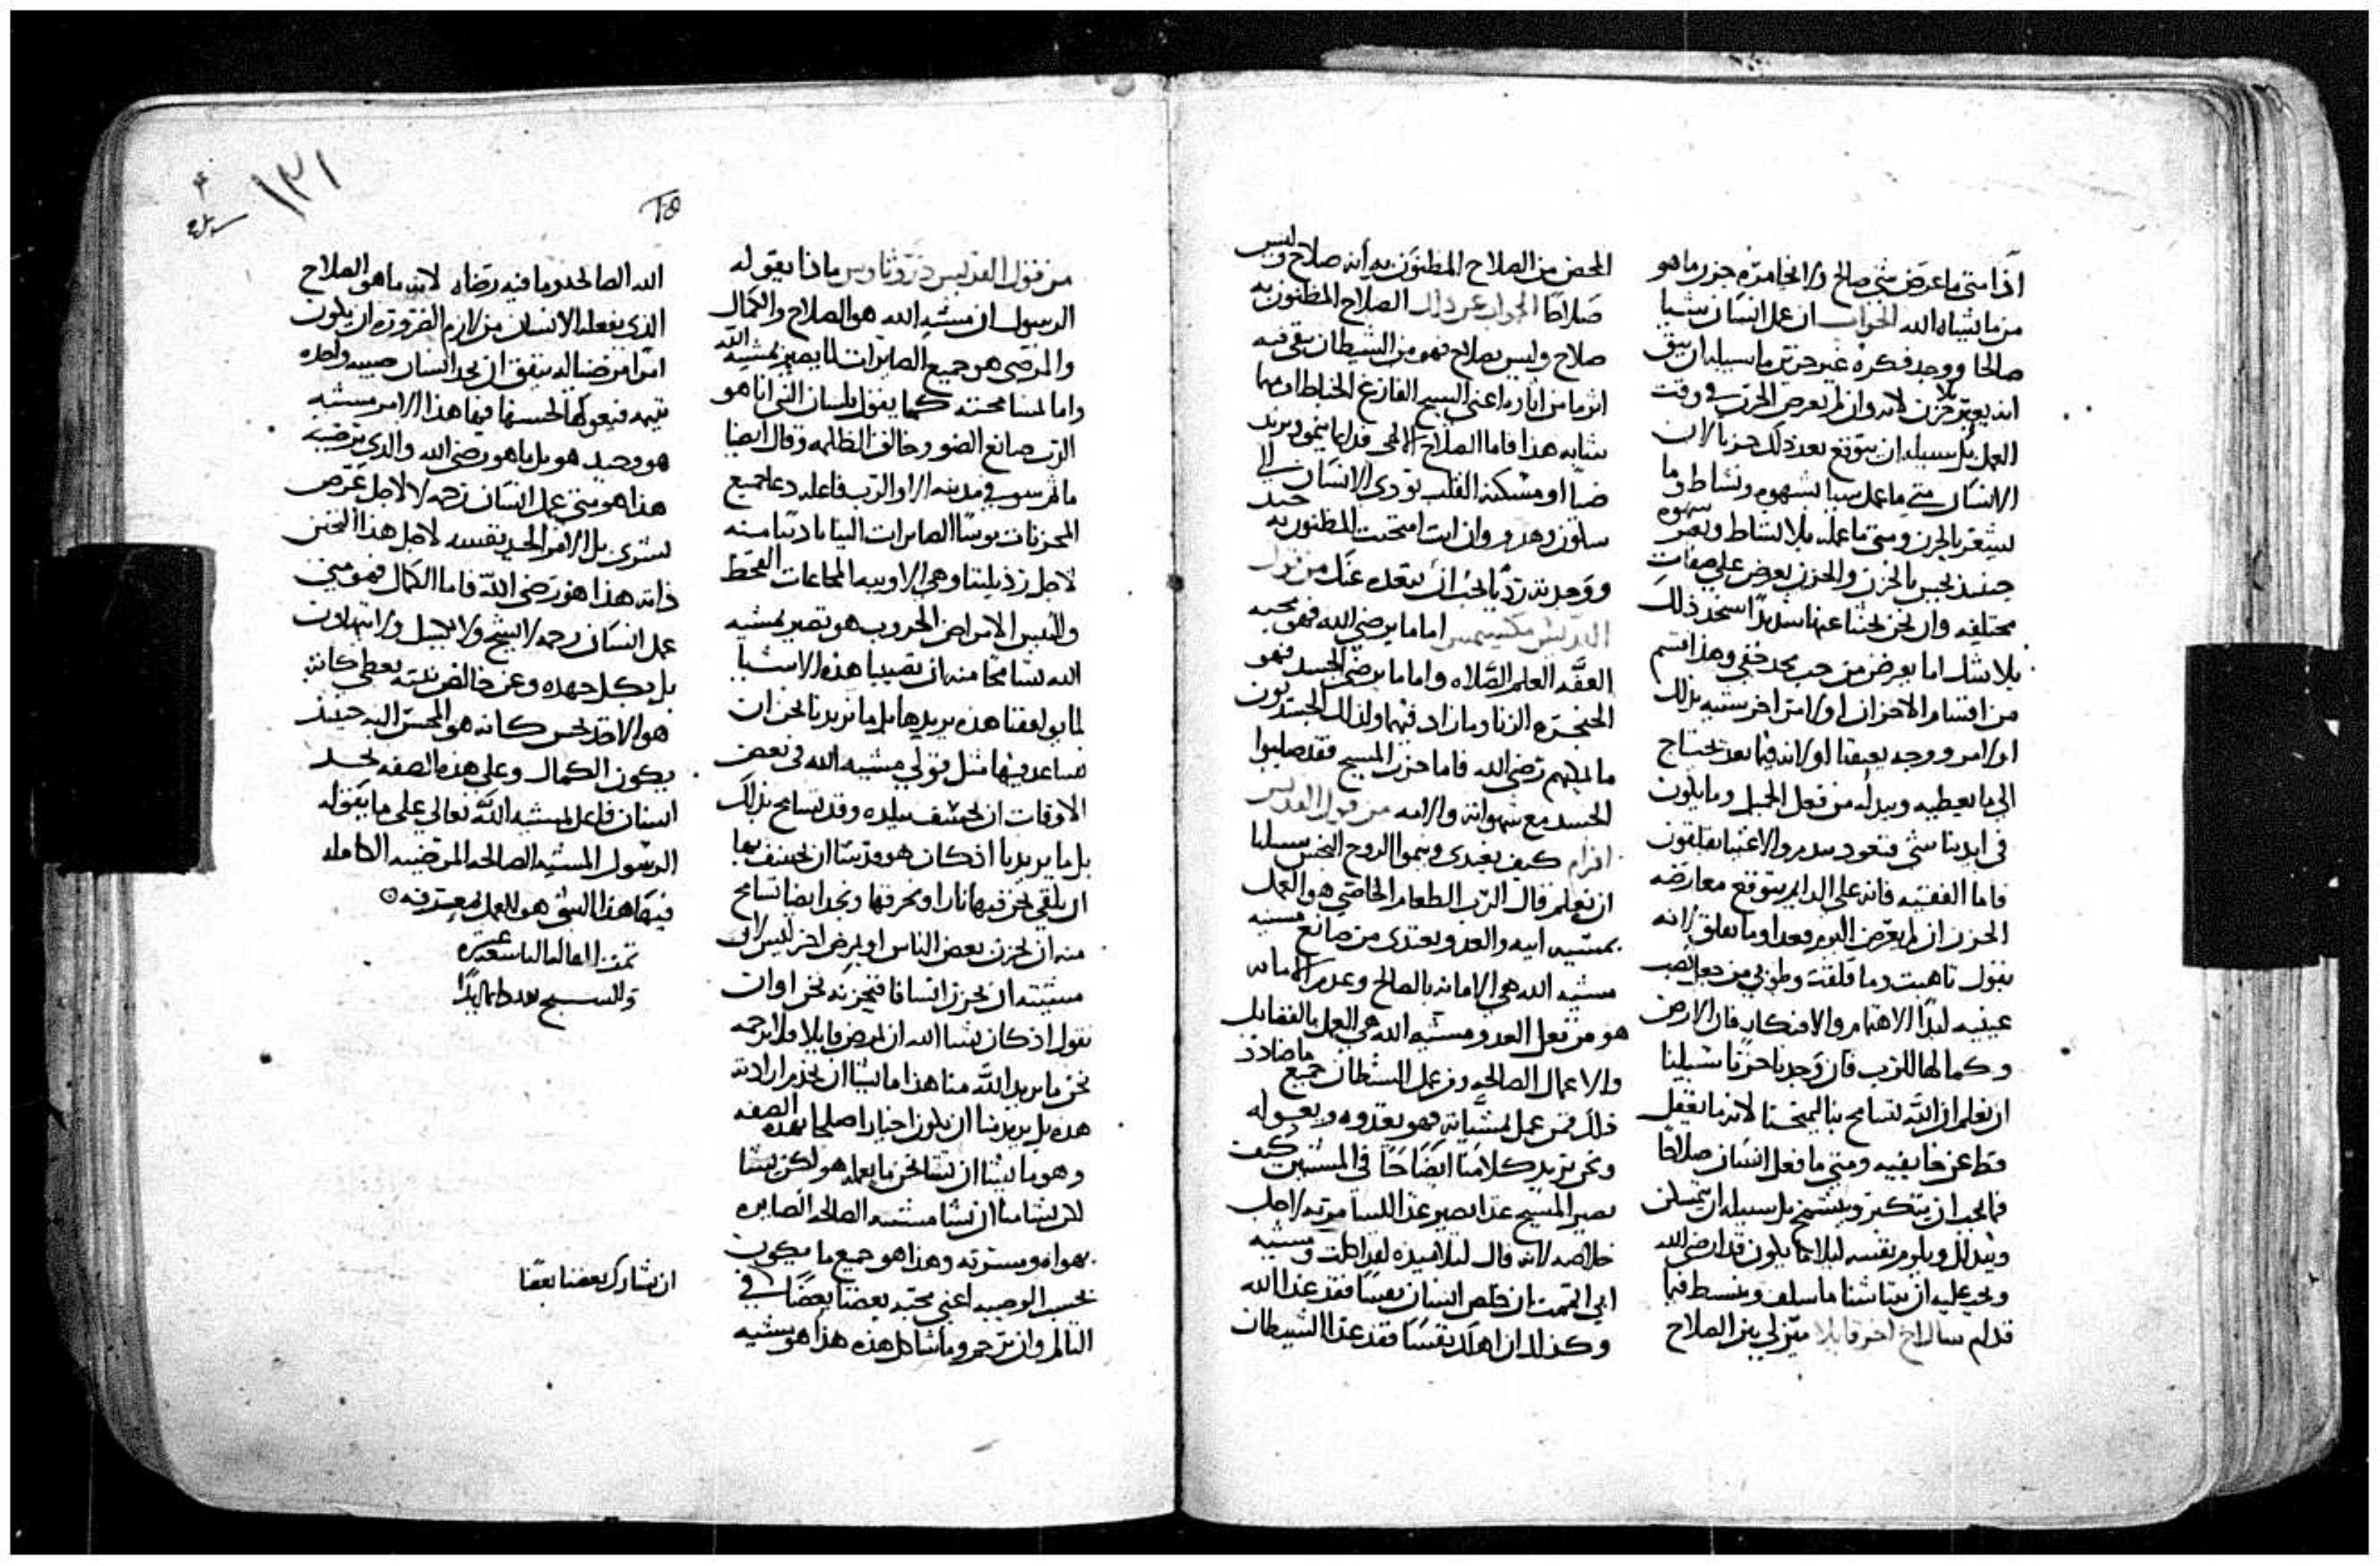 اذا متى ما عرض شي صالح
من ما يشاه الله الجواب ان عمل انسان شيا
صالحا ووجد فكره غير حزين ما سبيله ان يثق
انه يبقى بلا حزن لانه وان لم يعرض الحزن في وقت
العمل بل سبيله ان يتوقع بعد ذلك حزنا لان
الانسان متى ما عمل شيا بشهوه ونشاط وما
يشعر بالحزن ومتى ما عمله بلا نشاط وبغير شهوه
حينيذ يحس بالحزن والحزن يعرض على صفات
مختلفه وان نحن بحثنا عنها نجد ذلك
بلا شك اما يعرض من حب مجد خفي وهذا قسم
من اقسام الاحزان او لامر اخر شبيه بذلك
او لامر ووجد يعيقنا او لانه فيما بعد نحتاج
الى ما يعطيه ويبدله من فعل الجميل وما يكون
في ايدينا شي فنعود نندم والاغنيا يقلقون
فاما الفقيه فانه على الدايم يتوقع معارضه
الحزن ان لم يعرض اليوم فغدا وما يقلق لانه
يقول تاهبت وما قلقت وطوبى من جعل نصب
عينيه ابدا الاهتمام والافتكار فان الارض
وكمالها للرب فان وجدنا حزنا سبيلنا
ان نعلم ان الله تسامح بنا ليمتحنا لانه ما يغفل
قط عن خايفيه ومتى ما فعل انسان صلاحا
فما يجب ان يتكبر ويشمخ بل سبيله ان يتمسكن
ويتذلل ويلوم نفسه ليلا ما يكون قد ارضى الله
ويجب عليه ان يتناشا ما سلف وينبسط فيما
قدام سال اخ اخر قايلا ميز لي بين الصلاح
المحض من الصلاح المظنون به انه صلاح وليس
صلاحا الجواب عن ذلك الصلاح المظنون به
صلاح وليس بصلاح فهو من الشيطان يبقى فيه
اثر ما من اثاره اعني السبح الفارغ الخباط او مهما
شابه هذا فاما الصلاح الالهي فدايما ينمو ويزيد
ضيا او مسكنة القلب تودي الانسان الى
سكون وهدو وان انت امتحنت المظنون به جيد
ووجدته رديا يجب ان تبعده عنك من قول
القديس مكسيمس اما ما يرضي الله فهو محبه
العفه العلم الصلاه واما ما يرضي الجسد فهو
الحنجره الزنا وما زاد فيهما ولذلك الجسديون
ما يمكنهم رضى الله فاما حزب المسيح فقد صلبوا
الجسد مع شهواته والامه من قول القديس
افرام كيف يغتدي وينموا الروح النجس سبيلنا
ان نعلم قال الرب الطعام الخاصي هو العمل
بمشيه ابيه والعدو يغتدي من صانع مشيه
مشيه الله هي الامانه بالصالح وعدم الامانه
هو من فعل العدو ومشيه الله هي العمل بالفضايل
والاعمال الصالحه ومن عمل الشيطان جميع ما ضادد
ذلك فمن عمل لمشياته فهو يغدوه ويعوله
ونحن نزيد كلامنا ايضاحا في المشيتين كيف
يصير المسيح غدا يصير غدا اللسامريه لاجل
خلاصه لانه قال لتلاميذه لقد اكلت ومشيه
ابي اتممت ان خلص انسان نفسا فقد غذا الله
وكذلك ان اهلك نفسا فقد غذا الشيطان
١٣١
من قول القديس دوروثاوس ماذا يقوله
الرسول ان مشيه الله هو الصلاح والكمال
والمرضي هو جميع الصايرات لما يصير بمشيه الله
واما لمسامحته كما يقول بلسان النبي انا هو
الرب صانع الضو وخالق الظلمه وقال ايضا
ما شر سو في مدينه الا والرب فاعله دعا جميع
المحزنات بوسا الصايرات الينا تاديبا منه
لاجل رذيلتنا وهي الاوبيه المجاعات القحط
والتعس الامراض الحروب هو تصير بمشيه
الله تسامحا منه ان تصيبنا هذه الاشيا
لما يوافقنا هذه يريدها بل ما يريد نا نحن ان
نساعد فيها مثل قولي مشيه الله في بعض
الاوقات ان تخسف ببلده وقد تسامح بذلك
بل ما يريدنا اذ كان هو قد شا ان تخسف بها
ان نلقي نحن فيها نارا ونحرقها ونجد ايضا تسامح
منه ان يحزن بعض الناس او يمرض اخر ليس لان
مشيته ان يحزن انسانا فنحزنه نحن او ان
نقول اذ كان يشا الله ان يمرض فلا نرحمه
نحن ما يريد الله منا هذا ما يشا ان نخدم ارادته
هذه بل يريد منا ان نكون اخيارا صلحا بهذه الصفه
وهو ما يشا ان نشا نحن ما يعمله هو لكن يشا
لكن يشا منا ان نشا مشيته الصالحه الصايره
بهواه ومسرته وهذا هو جميع ما يكون
بحسب الوصيه اعني محبه بعضنا بعضا في
العالم وان نرحم وما شاكل هذه هذا هو مشيه
الله الصالحه وما فيه رضاه لانه ما هو الصلاح
الذي يفعله الانسان من لازم الضروره ان يكون
امرا مرضيا له يتفق ان يجد انسان صبيه واحده
يتيمه فيعولها لحسنها فيما هذا الامر مشيه
هو وحيد هو بل ما هو رضى الله والذي يرضيه
هذا هو متى عمل انسان رحمه لا لاجل غرض
بشري بل لامر الجيد بنفسه لاجل هذا التحنن
ذاته هذا هو رضى الله فاما الكمال فهو متى
عمل انسان رحمه لا بشح ولا ببخل ولا بتهاون
بل بكل جهده وعن خالص نيته يعطي كانه
هو الاخذ يحسن كانه هو المحسن اليه حينيذ
يكون الكمال وعلى هذه الصفه يجد
انسان فاعل لمشيه الله تعالى على ما يقوله
الرسول المشيه الصالحه المرضيه الكامله
فيما هذا الشي هو العمل بمعرفه
تمت المقاله التاسعه عشره
وللمسيح المجد دايما ابدا
ان نشارك بعضنا بعضا